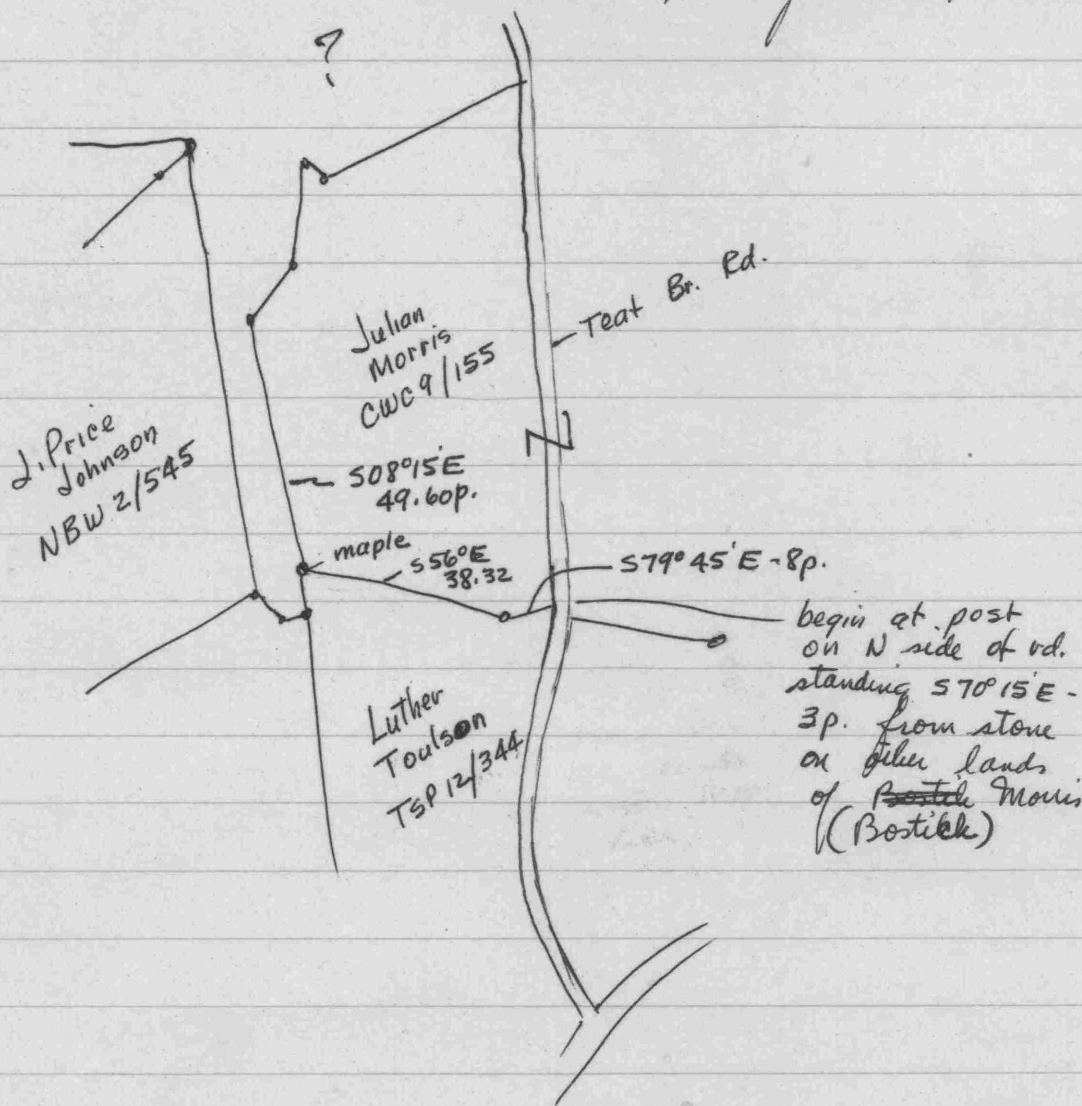 ?
Teat Br. Rd.
Julian
Morris
CWC 9/155
J. Price
Johnson
NBW 2/545
S08°15'E
49.60p.
maple
S56°E
38.32
S79°45'E - 8p.
begin at post
on N side of rd.
standing S70°15'E -
3p. from stone
on other lands
of Bostick Morris
(Bostick)
Luther
Toulson
TSP 12/344